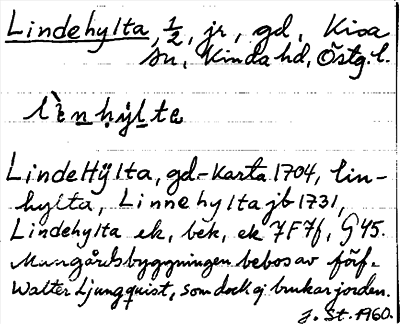 Lindehylta, 1/2, jr, gd, Kisa
sn, Kinda hd, Östg. l.
lìnhylta
LindeHÿlta, gd-Karta 1704, lin-
hylta, Linnehylta jb 1731,
Lindehylta ek, bek, ek 7F7f, G45.
Mangårdsbyggningen bebos av förf.
Walter Ljungquist, som dock ej brukar jorden.
J. St. 1960.